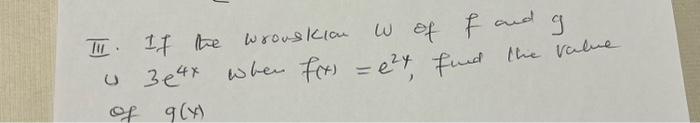 III. If the wronskian W of f and g
is 3e^{4x} when f(x) = e^{2x}, find the value
of g(x)